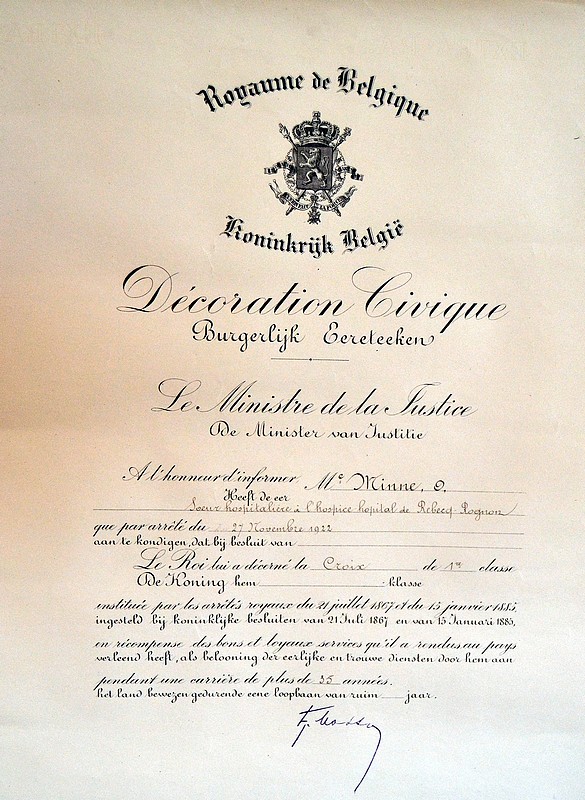 Royaume de Belgique
Koninkrijk België
Décoration Civique
Burgerlijk Eereteeken
Le Ministre de la Justice
De Minister van Justitie
A l'honneur d'informer Me Minne, O.
Heeft de eer
Soeur hospitalière à l'hospice-hôpital de Rebecq-Rognon
que par arrêté du 27 Novembre 1922
aan te kondigen, dat bij besluit van
Le Roi lui a décerné la Croix de 1re classe
De Koning hem klasse
instituée par les arrêtés royaux du 21 juillet 1867 et du 15 janvier 1885,
ingesteld bij koninklijke besluiten van 21 Juli 1867 en van 15 Januari 1885,
en récompense des bons et loyaux services qu'il a rendus au pays
verleend heeft, als belooning der eerlijke en trouwe diensten door hem aan
pendant une carrière de plus de 35 années.
het land bewezen gedurende eene loopbaan van ruim jaar.